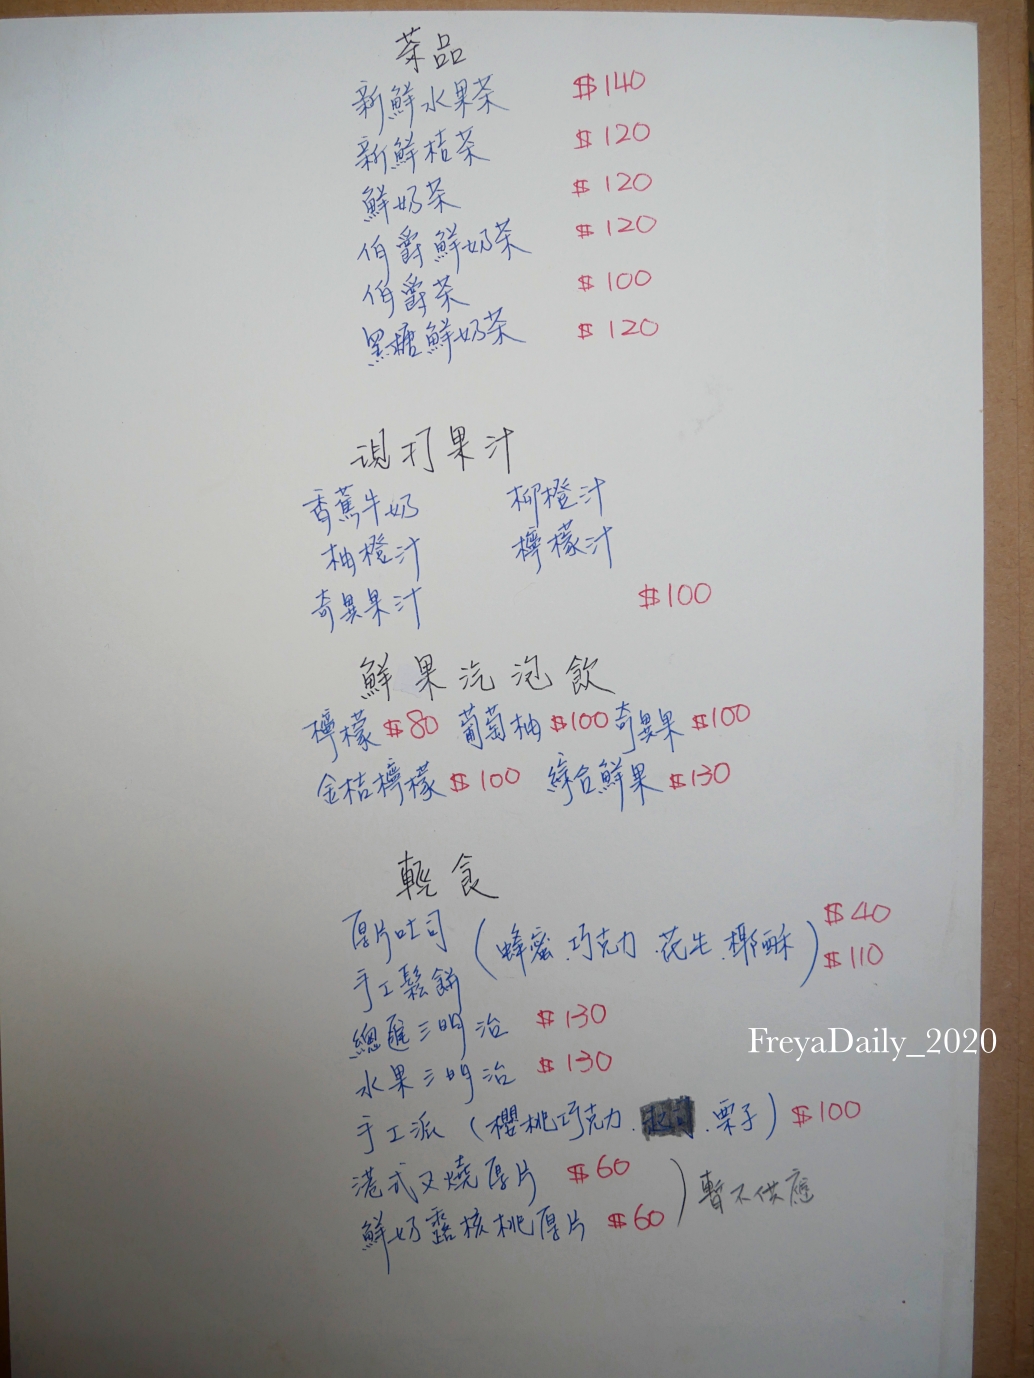 茶品
新鮮水果茶 $140
新鮮桔茶 $120
鮮奶茶 $120
伯爵鮮奶茶 $120
伯爵茶 $100
黑糖鮮奶茶 $120
現打果汁
香蕉牛奶 柳橙汁
柚橙汁 檸檬汁
奇異果汁 $100
鮮果汽泡飲
檸檬 $80 葡萄柚 $100 奇異果 $100
金桔檸檬 $100 綜合鮮果 $130
輕食
厚片吐司 (蜂蜜.巧克力.花生.椰酥) $40
手工鬆餅 $110
總匯三明治 $130
水果三明治 $130
手工派 (櫻桃巧克力. .栗子) $100
港式叉燒厚片 $60
鮮奶露核桃厚片 $60 )暫不供應
FreyaDaily_2020